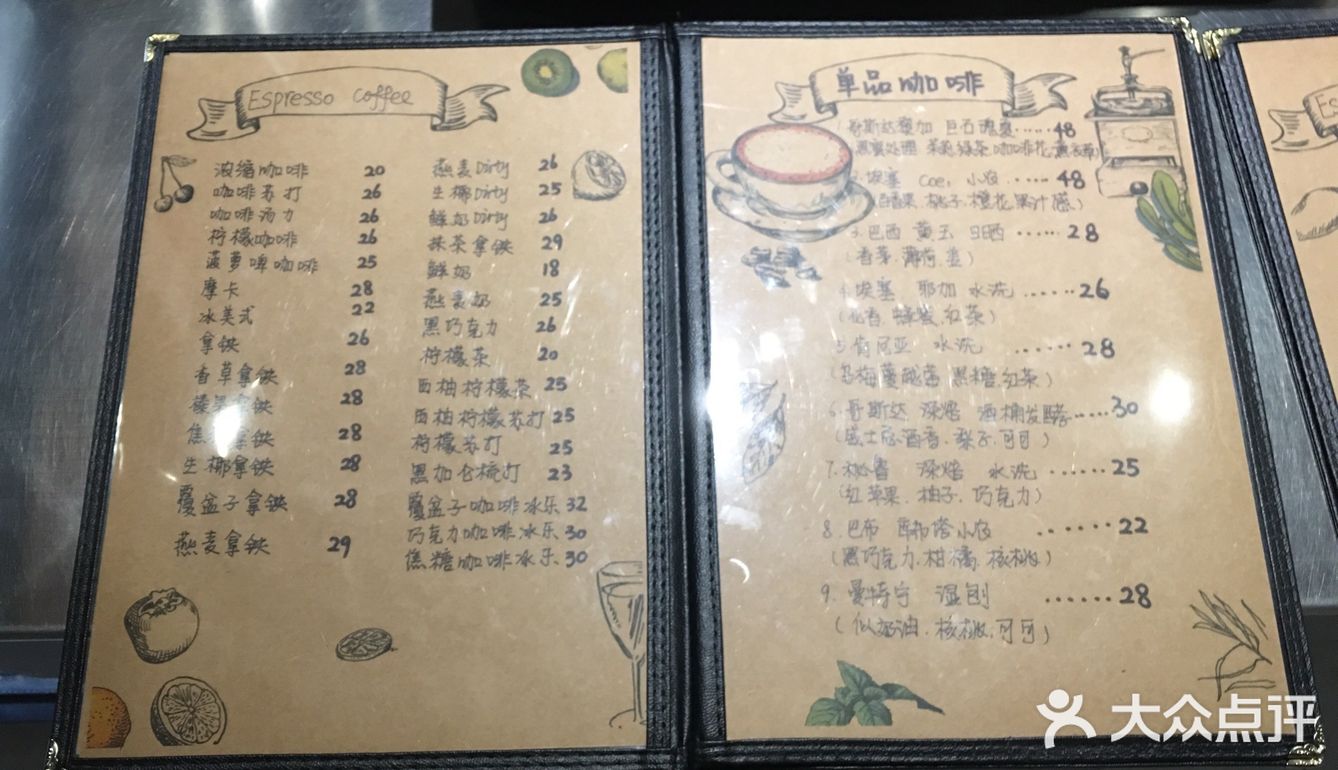 Espresso coffee
浓缩咖啡 20
咖啡苏打 26
咖啡汤力 26
柠檬咖啡 26
菠萝啤咖啡 25
摩卡 28
冰美式 22
拿铁 26
香草拿铁 28
榛果拿铁 28
焦糖拿铁 28
生椰拿铁 28
覆盆子拿铁 28
燕麦拿铁 29
燕麦Dirty 26
生椰Dirty 25
鲜奶Dirty 26
抹茶拿铁 29
鲜奶 18
燕麦奶 25
黑巧克力 26
柠檬茶 20
西柚柠檬茶 25
西柚柠檬苏打 25
柠檬苏打 25
黑加仑梳打 23
覆盆子咖啡冰乐 32
巧克力咖啡冰乐 30
焦糖咖啡冰乐 30
单品咖啡
哥斯达黎加 巨石 48
黑蜜处理 茉莉绿茶 咖啡花
埃塞 coe, 小农 ... 48
(百香果.桃子.橙花.果汁感)
3. 巴西 黄玉 日晒 ...... 28
(香茅.薄荷.姜)
4. 埃塞 耶加 水洗 ...... 26
(花香.蜂蜜.红茶)
5 肯尼亚 水洗 ...... 28
(乌梅 蔓越莓 黑糖.红茶)
6. 哥斯达 深焙 酒桶发酵 ...... 30
(威士忌酒香.梨子.可可)
7. 秘鲁 深焙 水洗 ...... 25
(红苹果.柚子.巧克力)
8. 巴布 小农 ...... 22
(黑巧克力.柑橘.核桃)
9. 曼特宁 湿刨 ...... 28
(似奶油.核桃.可可)
大众点评